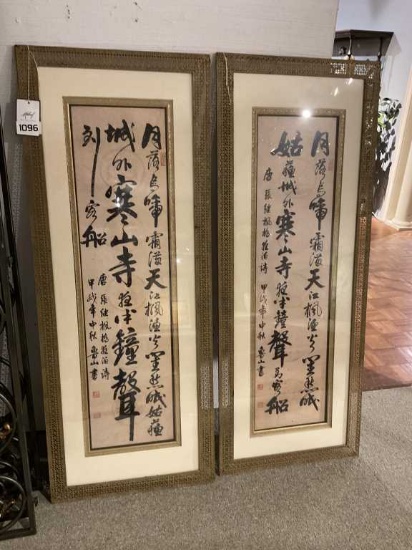 1096
月落烏啼霜滿天江楓漁火對愁眠姑蘇
城外寒山寺夜半鐘聲
到客船
唐張繼楓橋夜泊詩
甲戌年中秋山書
月落烏啼霜滿天江楓漁火對愁眠
姑蘇城外寒山寺夜半鐘聲到客船
唐張繼楓橋夜泊詩甲戌年中秋山書